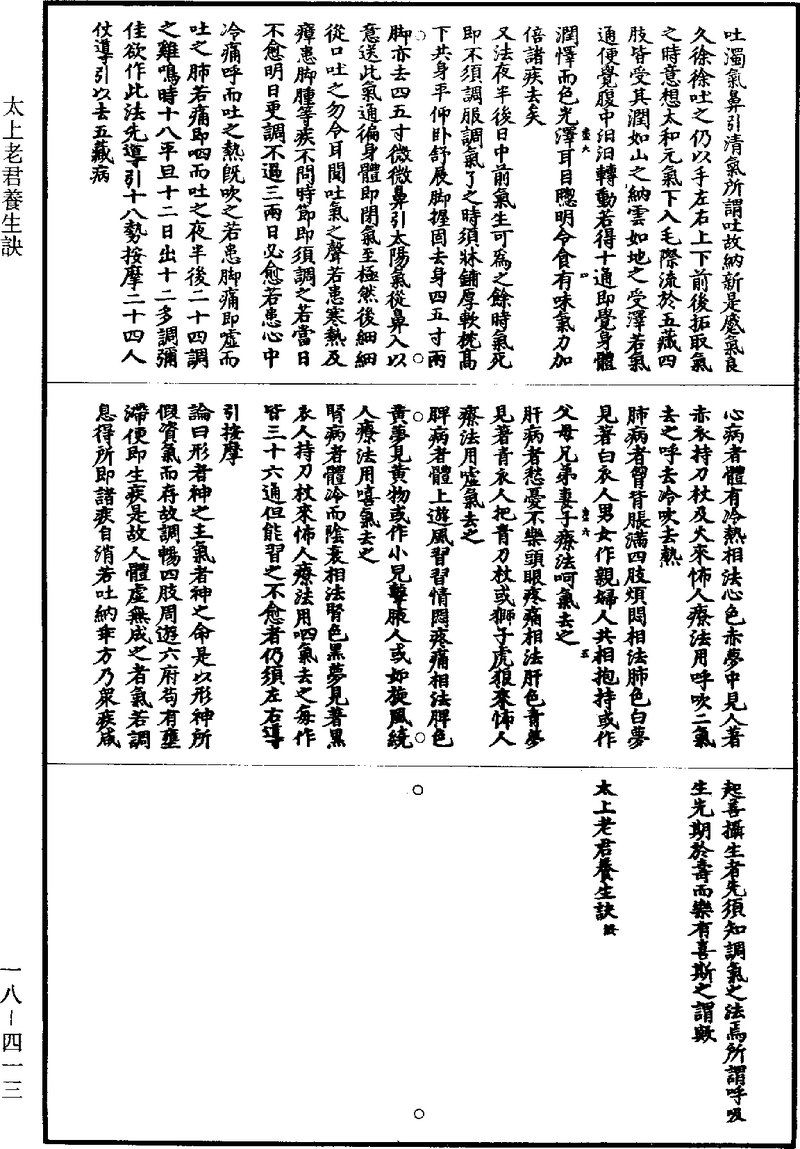 吐濁氣鼻引清氣所謂吐故納新是處氣良
久徐徐吐之仍以手左右上下前後拓取氣
之時意想太和元氣下入毛際流於五藏四
肢皆受其潤如山之納雲如地之受澤若氣
通便覺腹中汩汩轉動若得十通即覺身體
潤懌而色光澤耳目聰明令食有味氣力加
倍諸疾去矣
又法夜半後日中前氣生可為之餘時氣死
即不須調服調氣了之時須牀鋪厚軟枕高
下共身平仰卧舒展脚握固去身四五寸兩
脚亦去四五寸微微鼻引太陽氣從鼻入以
意送此氣通徧身體即閉氣至極然後細細
從口吐之勿令耳聞吐氣之聲若患寒熱及
瘴患脚腫等疾不問時節即須調之若當日
不愈明日更調不過三兩日必愈若患心中
冷痛呼而吐之熱既吹之若患脚痛即噓而
吐之肺若痛即呬而吐之夜半後二十四調
之雞鳴時十八平旦十二日出十二多調彌
佳欲作此法先導引十八勢按摩二十四人
仗導引以去五藏病
心病者體有冷熱相法心色赤夢中見人著
赤衣持刀杖及火來怖人療法用呼吹二氣
去之呼去冷吹去熱
肺病者胷背脹滿四肢煩悶相法肺色白夢
見著白衣人男女作親婦人共相抱持或作
父母兄弟妻子療法呵氣去之
肝病者愁憂不樂頭眼疼痛相法肝色青夢
見著青衣人把青刀杖或獅子虎狼來怖人
療法用噓氣去之
脾病者體上遊風習習情悶疼痛相法脾色
黃夢見黃物或作小兒擊脹人或如旋風繞
人療法用嘻氣去之
腎病者體冷而陰衰相法腎色黑夢見著黑
衣人持刀杖來怖人療法用呬氣去之每作
皆三十六通但能習之不愈者仍須左右導
引按摩
論曰形者神之主氣者神之命是以形神所
假資氣而存故調暢四肢周遊六府苟有壅
滯便即生疾是故人體虛無成之者氣若調
息得所即諸疾自消若吐納乖方乃衆疾咸
起善攝生者先須知調氣之法焉所謂呼吸
生先期於壽而樂有喜斯之謂歟
太上老君養生訣
太上老君養生訣
一八-四一三